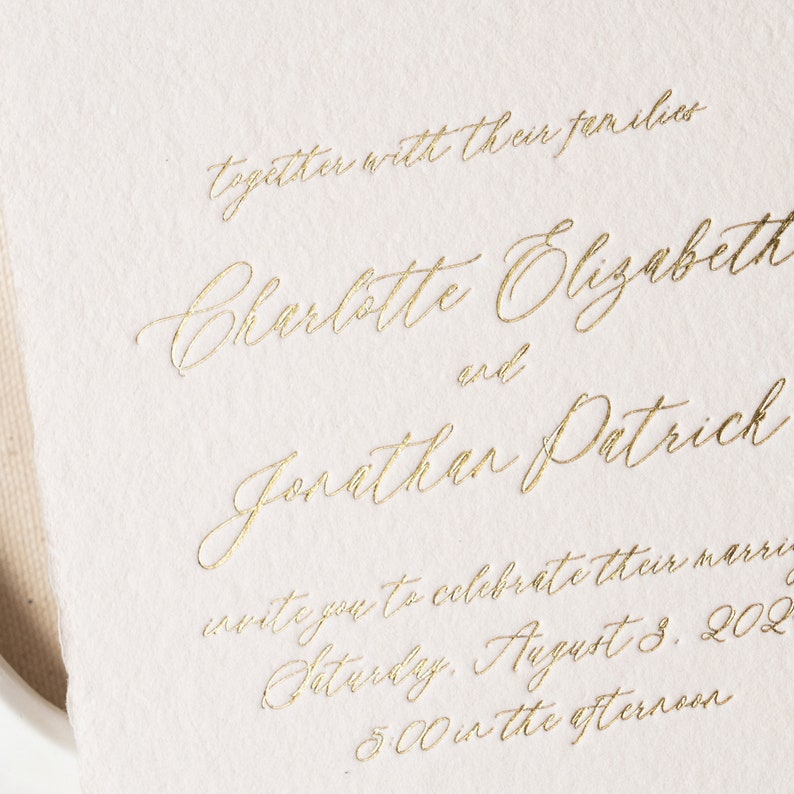 together with their families
Charlotte Elizabeth
and
Jonathan Patrick
invite you to celebrate their
Saturday, August 3, 202
5:00 in the afternoon